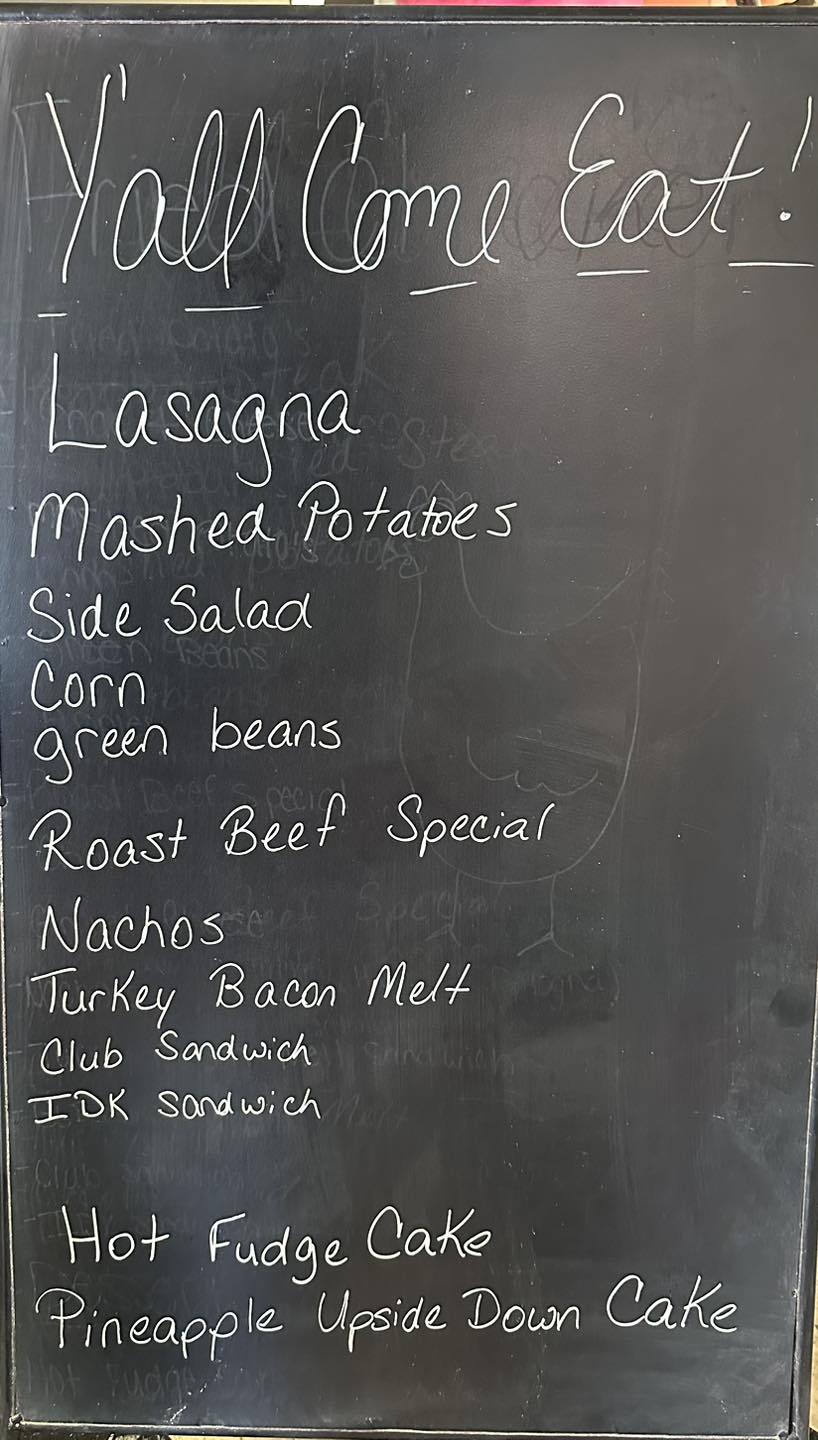 Y'all Come Eat!
Lasagna
Mashed Potatoes
Side Salad
Corn
green beans
Roast Beef Special
Nachos
Turkey Bacon Melt
Club Sandwich
IDK Sandwich
Hot Fudge Cake
Pineapple Upside Down Cake